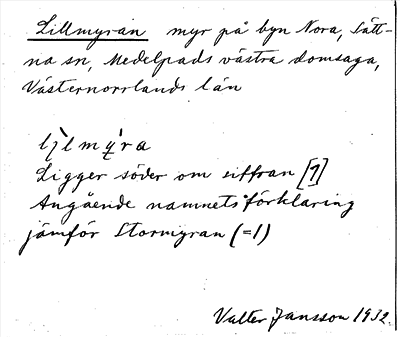 Lillmyran myr på byn Nora, Sätt-
na sn, Medelpads västra domsaga,
Västernorrlands län
Ligger söder om siffran [1]
Angående namnets förklaring
jämför Stormyran (=1)
Valter Jansson 1932.